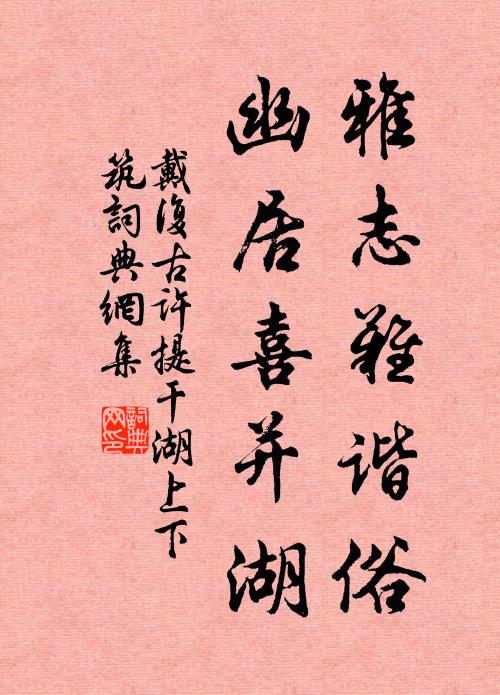 雅志難谐俗
幽居喜并湖
戴復古許提干湖上下
筑詞典網集
詞典
网印